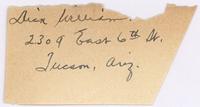 Dick William.
2309 East 6th St.
Tucson, Ariz.